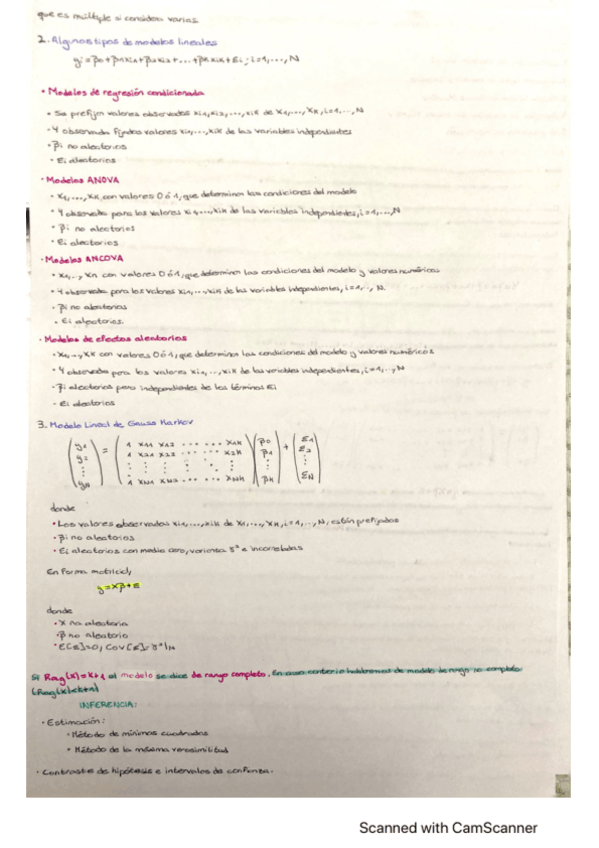 que es múltiple si considera varias
2. Algunos tipos de modelos lineales
yi = β0 + β1xi1 + β2xi2 + ... + βkxik + εi ; i=1,...,N
• Modelos de regresión condicionada
• Se prefijan valores observados xi1, xi2, ..., xik de X1, ..., Xk, i=1,...,N
• Y observada fijados valores xi1, ..., xik de las variables independientes
• βi no aleatorios
• Ei aleatorios
• Modelos ANOVA
• X1, ..., Xk con valores 0 ó 1, que determinan las condiciones del modelo
• Y observada para los valores xi1, ..., xik de las variables independientes, i=1,...,N
• βi no aleatorios
• Ei aleatorios
• Modelos ANCOVA
• X1, .., Xk con valores 0 ó 1, que determinan las condiciones del modelo y valores numéricos
• Y observada para los valores xi1, ..., xik de las variables independientes, i=1,.., N.
• βi no aleatorios
• Ei aleatorios.
• Modelos de efectos aleatorios
• X1, ..., Xk con valores 0 ó 1, que determinan las condiciones del modelo y valores numéricos
• Y observada para los valores xi1, ..., xik de las variables independientes, i=1,..,N
• βi aleatorios pero independientes de los términos Ei
- Ei aleatorios
3. Modelo Lineal de Gauss Markov
y1 1 x11 x12 ... ... x1k β0 ε1
y2 = 1 x21 x22 ... ... x2k β1 + ε2
⋮ ⋮ ⋮ ⋮ ⋮ ⋮ ⋮ ⋮
yN 1 xN1 xN2 ... ... xNk βk εN
donde
• Los valores observados xi1, ..., xik de X1, ..., Xk, i=1,..,N, están prefijados
• βi no aleatorios
• Ei aleatorios con media cero, varianza σ² e incorreladas
En forma matricial,
y = Xβ + ε
donde
• X no aleatoria
• β no aleatorio
• E[ε]=0, Cov[ε]=σ²IN
Si Rag(X)=k+1 el modelo se dice de rango completo. En caso contrario hablaremos de modelo de rango no completo
(Rag(X)<k+1)
INFERENCIA:
• Estimación:
• Método de mínimos cuadrados
• Método de la máxima verosimilitud
• Contraste de hipótesis e intervalos de confianza.
Scanned with CamScanner